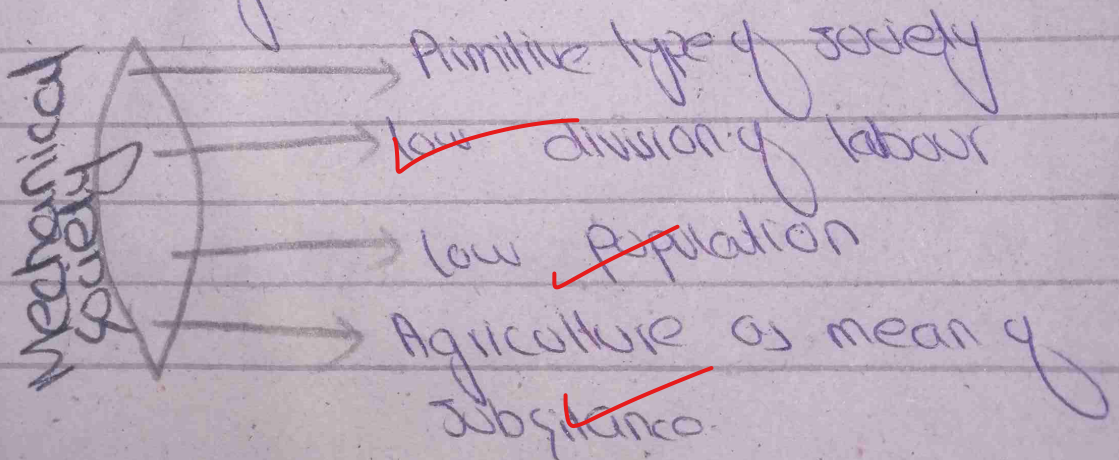 Mechanical
Society
Primitive type of society
low division of labour
low population
Agriculture as mean of
subsitance.